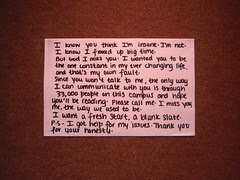 I know you think I'm insane. I'm not.
I know I fucked up big time.
But God I miss you. I wanted you to be
the one constant in my ever changing life,
and that's my own fault.
Since you won't talk to me, the only way
I can communicate with you is through
33,000 people on this campus and hope
you'll be reading. Please call me. I miss you
me, the way we used to be.
I want a fresh start, a blank slate.
P.S. I got help for my issues. Thank you
for your honesty.